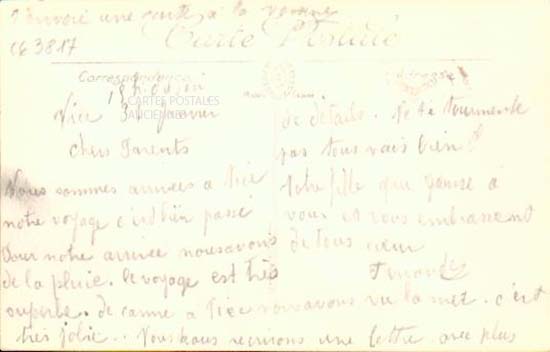 J'envoie une carte à la
CG 3817
Carte Postale
Correspondance
Adresse
CARTES POSTALES
ANCIENNES
Nice 31 Janvier
Chers Parents
Nous sommes arrivees a Nice
notre voyage c'est bien passé
Pour notre arrivee nous avons
de la pluie. le voyage est très
superbe. de canne a Nice nous avons vu la mer. c'est
très jolie.. Vous nous recrirons une lettre avec plus
de details. Ne te tourmente
pas tous vais bien
Votre fille qui pense à
vous et vous embrassent
de tous cœur